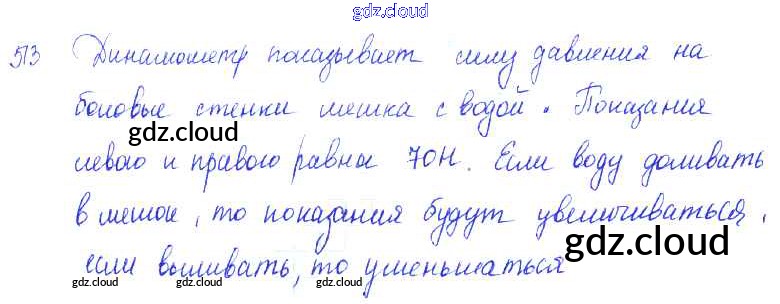 gdz.cloud
513 Динамометр показывает силу давления на
боковые стенки мешка с водой. Показания
gdz.cloud
левого и правого равны 70Н. Если воду доливать
в мешок, то показания будут увеличиваться,
gdz.cloud
если выливать, то уменьшаться
gdz.cloud gdz.cloud gdz.cloud